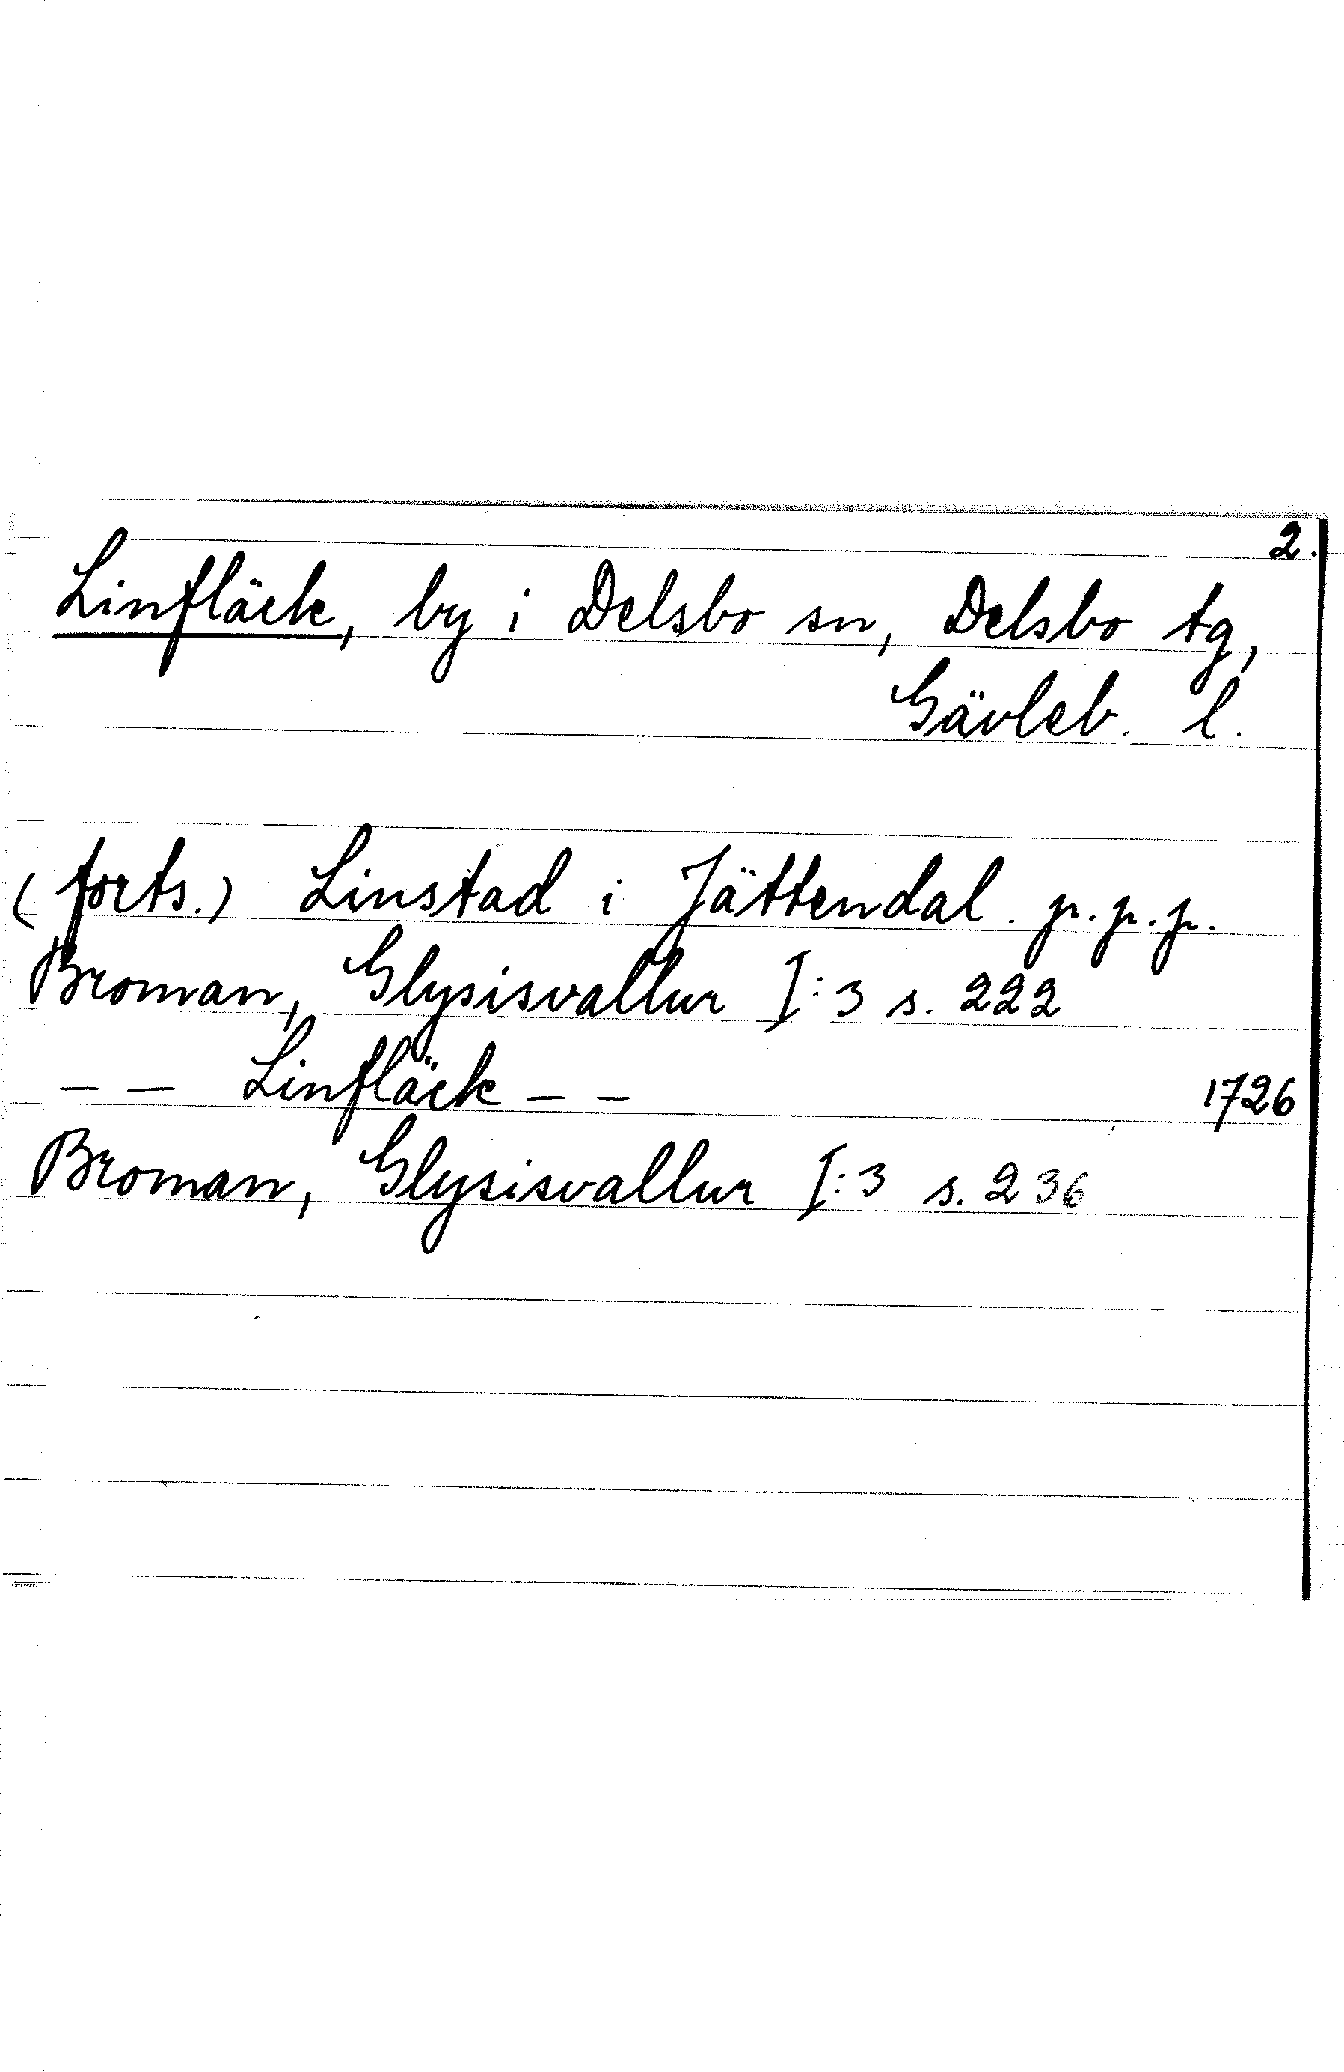 2.
Linfläck, by i Delsbo sn, Delsbo tg,
Gävleb. l.
(forts.) Linstad i Jättendal. p.p.p.
Broman, Glysisvallur I:3 s. 222
– – Linfläck – – 1726
Broman, Glysisvallur I:3 s. 236